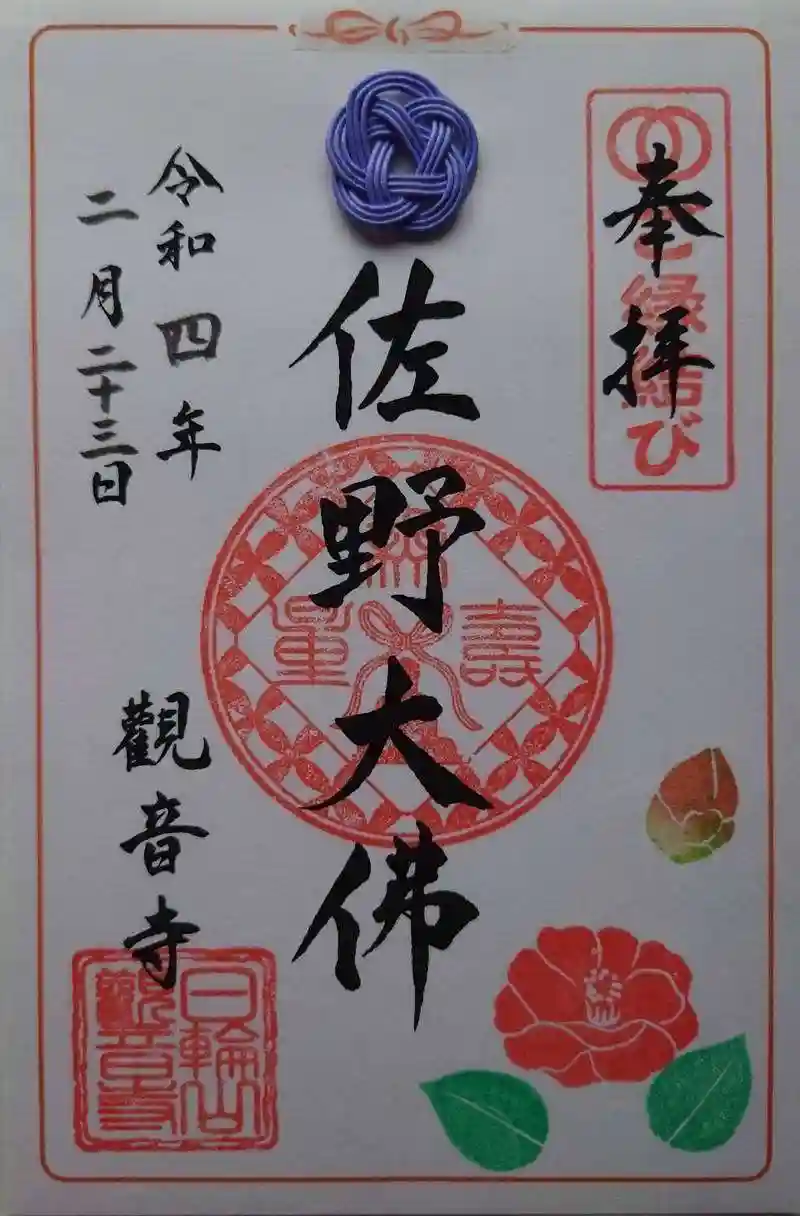 奉拝
ご縁結び
佐野大佛
無
壽
量
令和四年
二月二十三日
觀音寺
日輪山
觀音寺